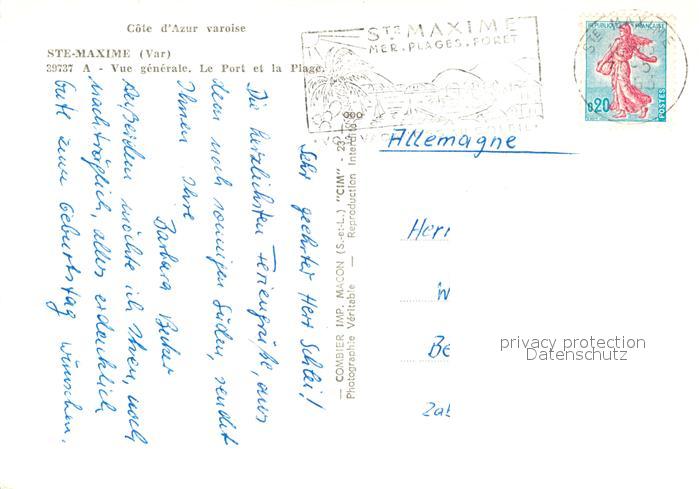 Côte d'Azur varoise
STE-MAXIME (Var)
39737 A - Vue générale. Le Port et la Plage.
STE MAXIME
MER. PLAGES. FORET
REPUBLIQUE FRANÇAISE
0.20
POSTES
Allemagne
Herr
W
Be
privacy protection
Datenschutz
— COMBIER IMP. MACON (S.-et-L.) "CIM" -
Photographie Véritable — Reproduction Interdite
Sehr geehrter Herr Schlei!
Die herzlichsten Feriengrüße, aus
dem noch sonnigen Süden, sendet
Ihnen Ihre
Barbara Becker
Außerdem möchte ich Ihnen, noch
nachträglich, alles erdenklich
Gute zum Geburtstag wünschen.